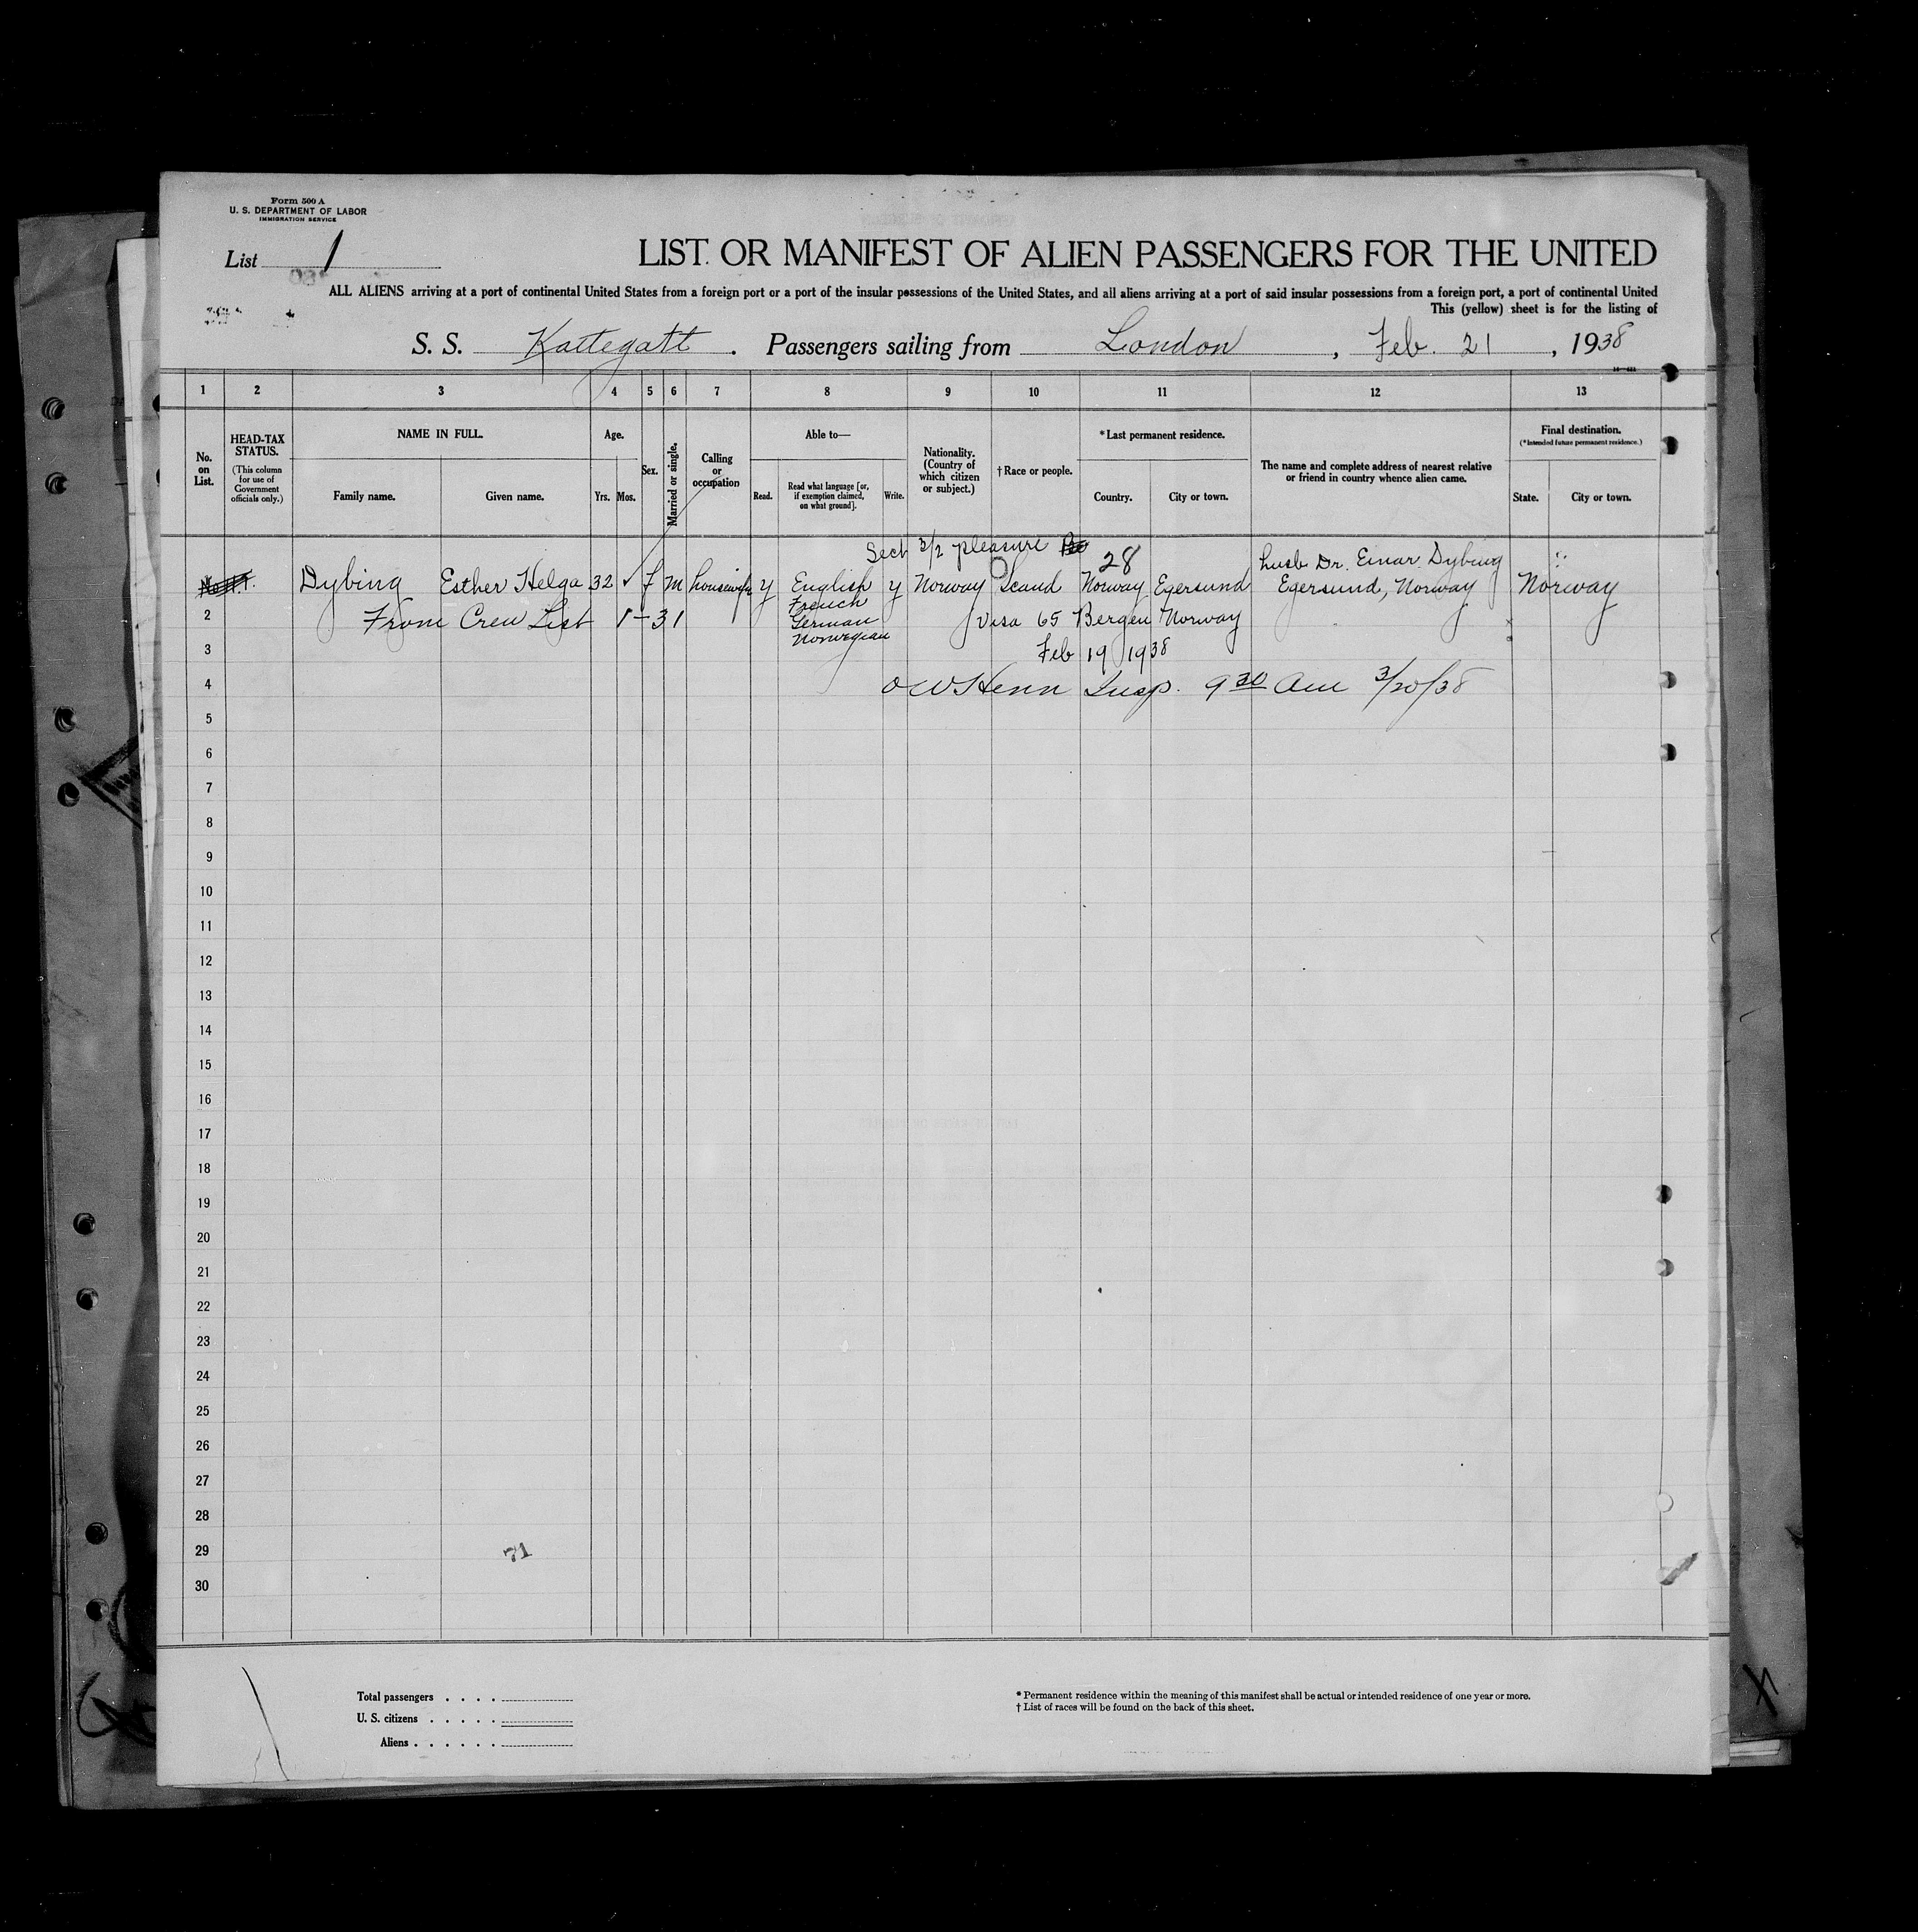 Form 500 A
U. S. DEPARTMENT OF LABOR
IMMIGRATION SERVICE
List 1
LIST OR MANIFEST OF ALIEN PASSENGERS FOR THE UNITED
ALL ALIENS arriving at a port of continental United States from a foreign port or a port of the insular possessions of the United States, and all aliens arriving at a port of said insular possessions from a foreign port, a port of continental United
This (yellow) sheet is for the listing of
S. S. Kattegatt . Passengers sailing from London , Feb. 21 , 1938
1 2 3 4 5 6 7 8 9 10 11 12 13
No. on List.
HEAD-TAX STATUS.
(This column for use of Government officials only.)
NAME IN FULL.
Family name. Given name.
Age.
Yrs. Mos.
Sex.
Married or single.
Calling or occupation
Able to—
Read. Read what language [or, if exemption claimed, on what ground]. Write.
Nationality. (Country of which citizen or subject.)
†Race or people.
*Last permanent residence.
Country. City or town.
The name and complete address of nearest relative or friend in country whence alien came.
Final destination.
(*Intended future permanent residence.)
State. City or town.
Sect 3/2 pleasure
28
husb Dr. Einar Dybing
Dybing Esther Helga 32 ✓ f m housewife y English y Norway Scand Norway Egersund Egersund, Norway Norway
French
2 From Crew List 1-31 German Visa 65 Bergen Norway
Norwegian
3 Feb 19 1938
4 O W Henn Insp. 9 30 Am 3/20/38
5
6
7
8
9
10
11
12
13
14
15
16
17
18
19
20
21
22
23
24
25
26
27
28
29 71
30
Total passengers . . . .
U. S. citizens . . . . .
Aliens . . . . . .
* Permanent residence within the meaning of this manifest shall be actual or intended residence of one year or more.
† List of races will be found on the back of this sheet.